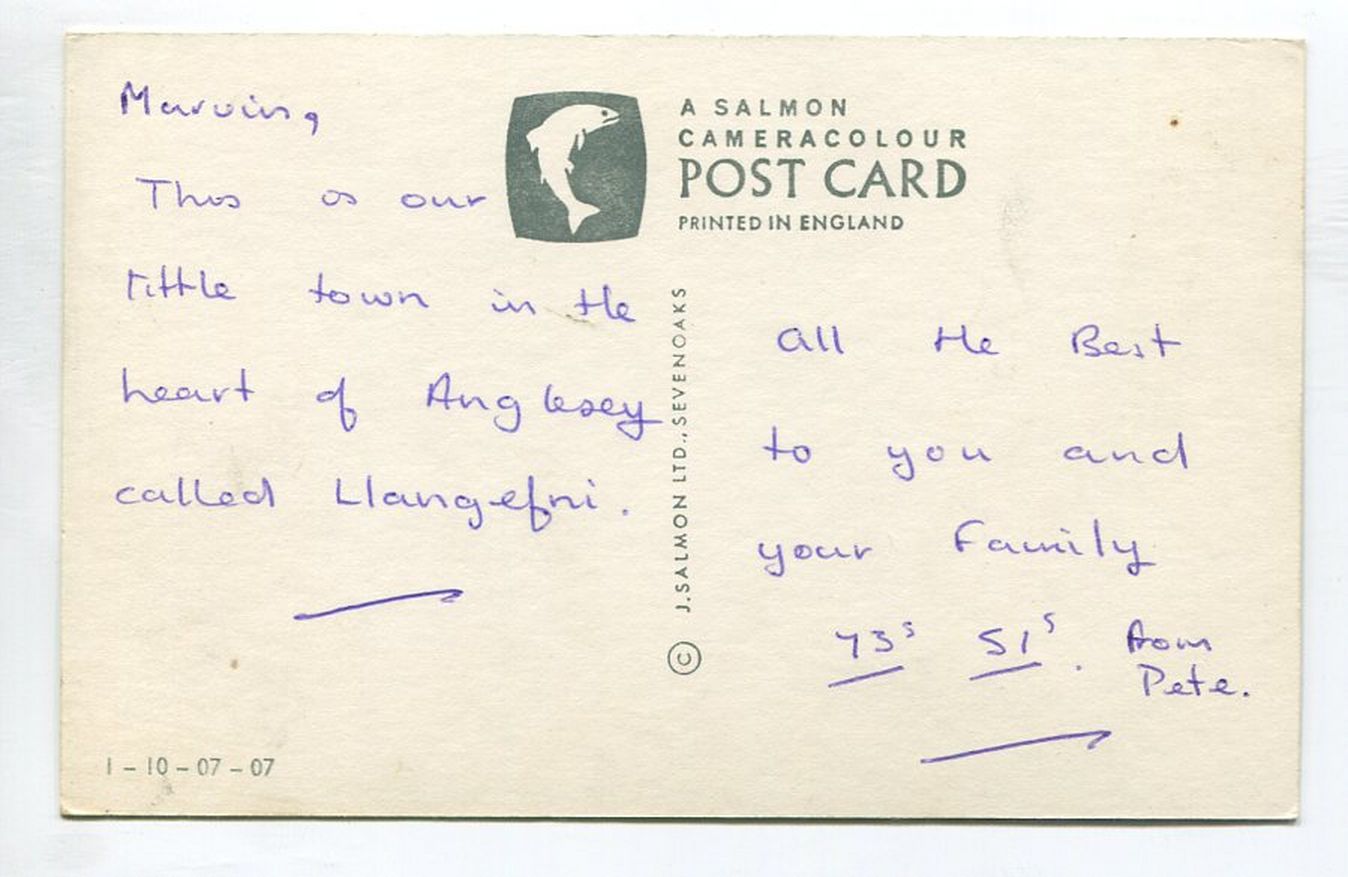 Marvin,
This is our
little town in the
heart of Anglesey
called Llangefni.
A SALMON
CAMERACOLOUR
POST CARD
PRINTED IN ENGLAND
© J. SALMON LTD., SEVENOAKS
All the Best
to you and
your Family
73s 51s. from
Pete.
1-10-07-07